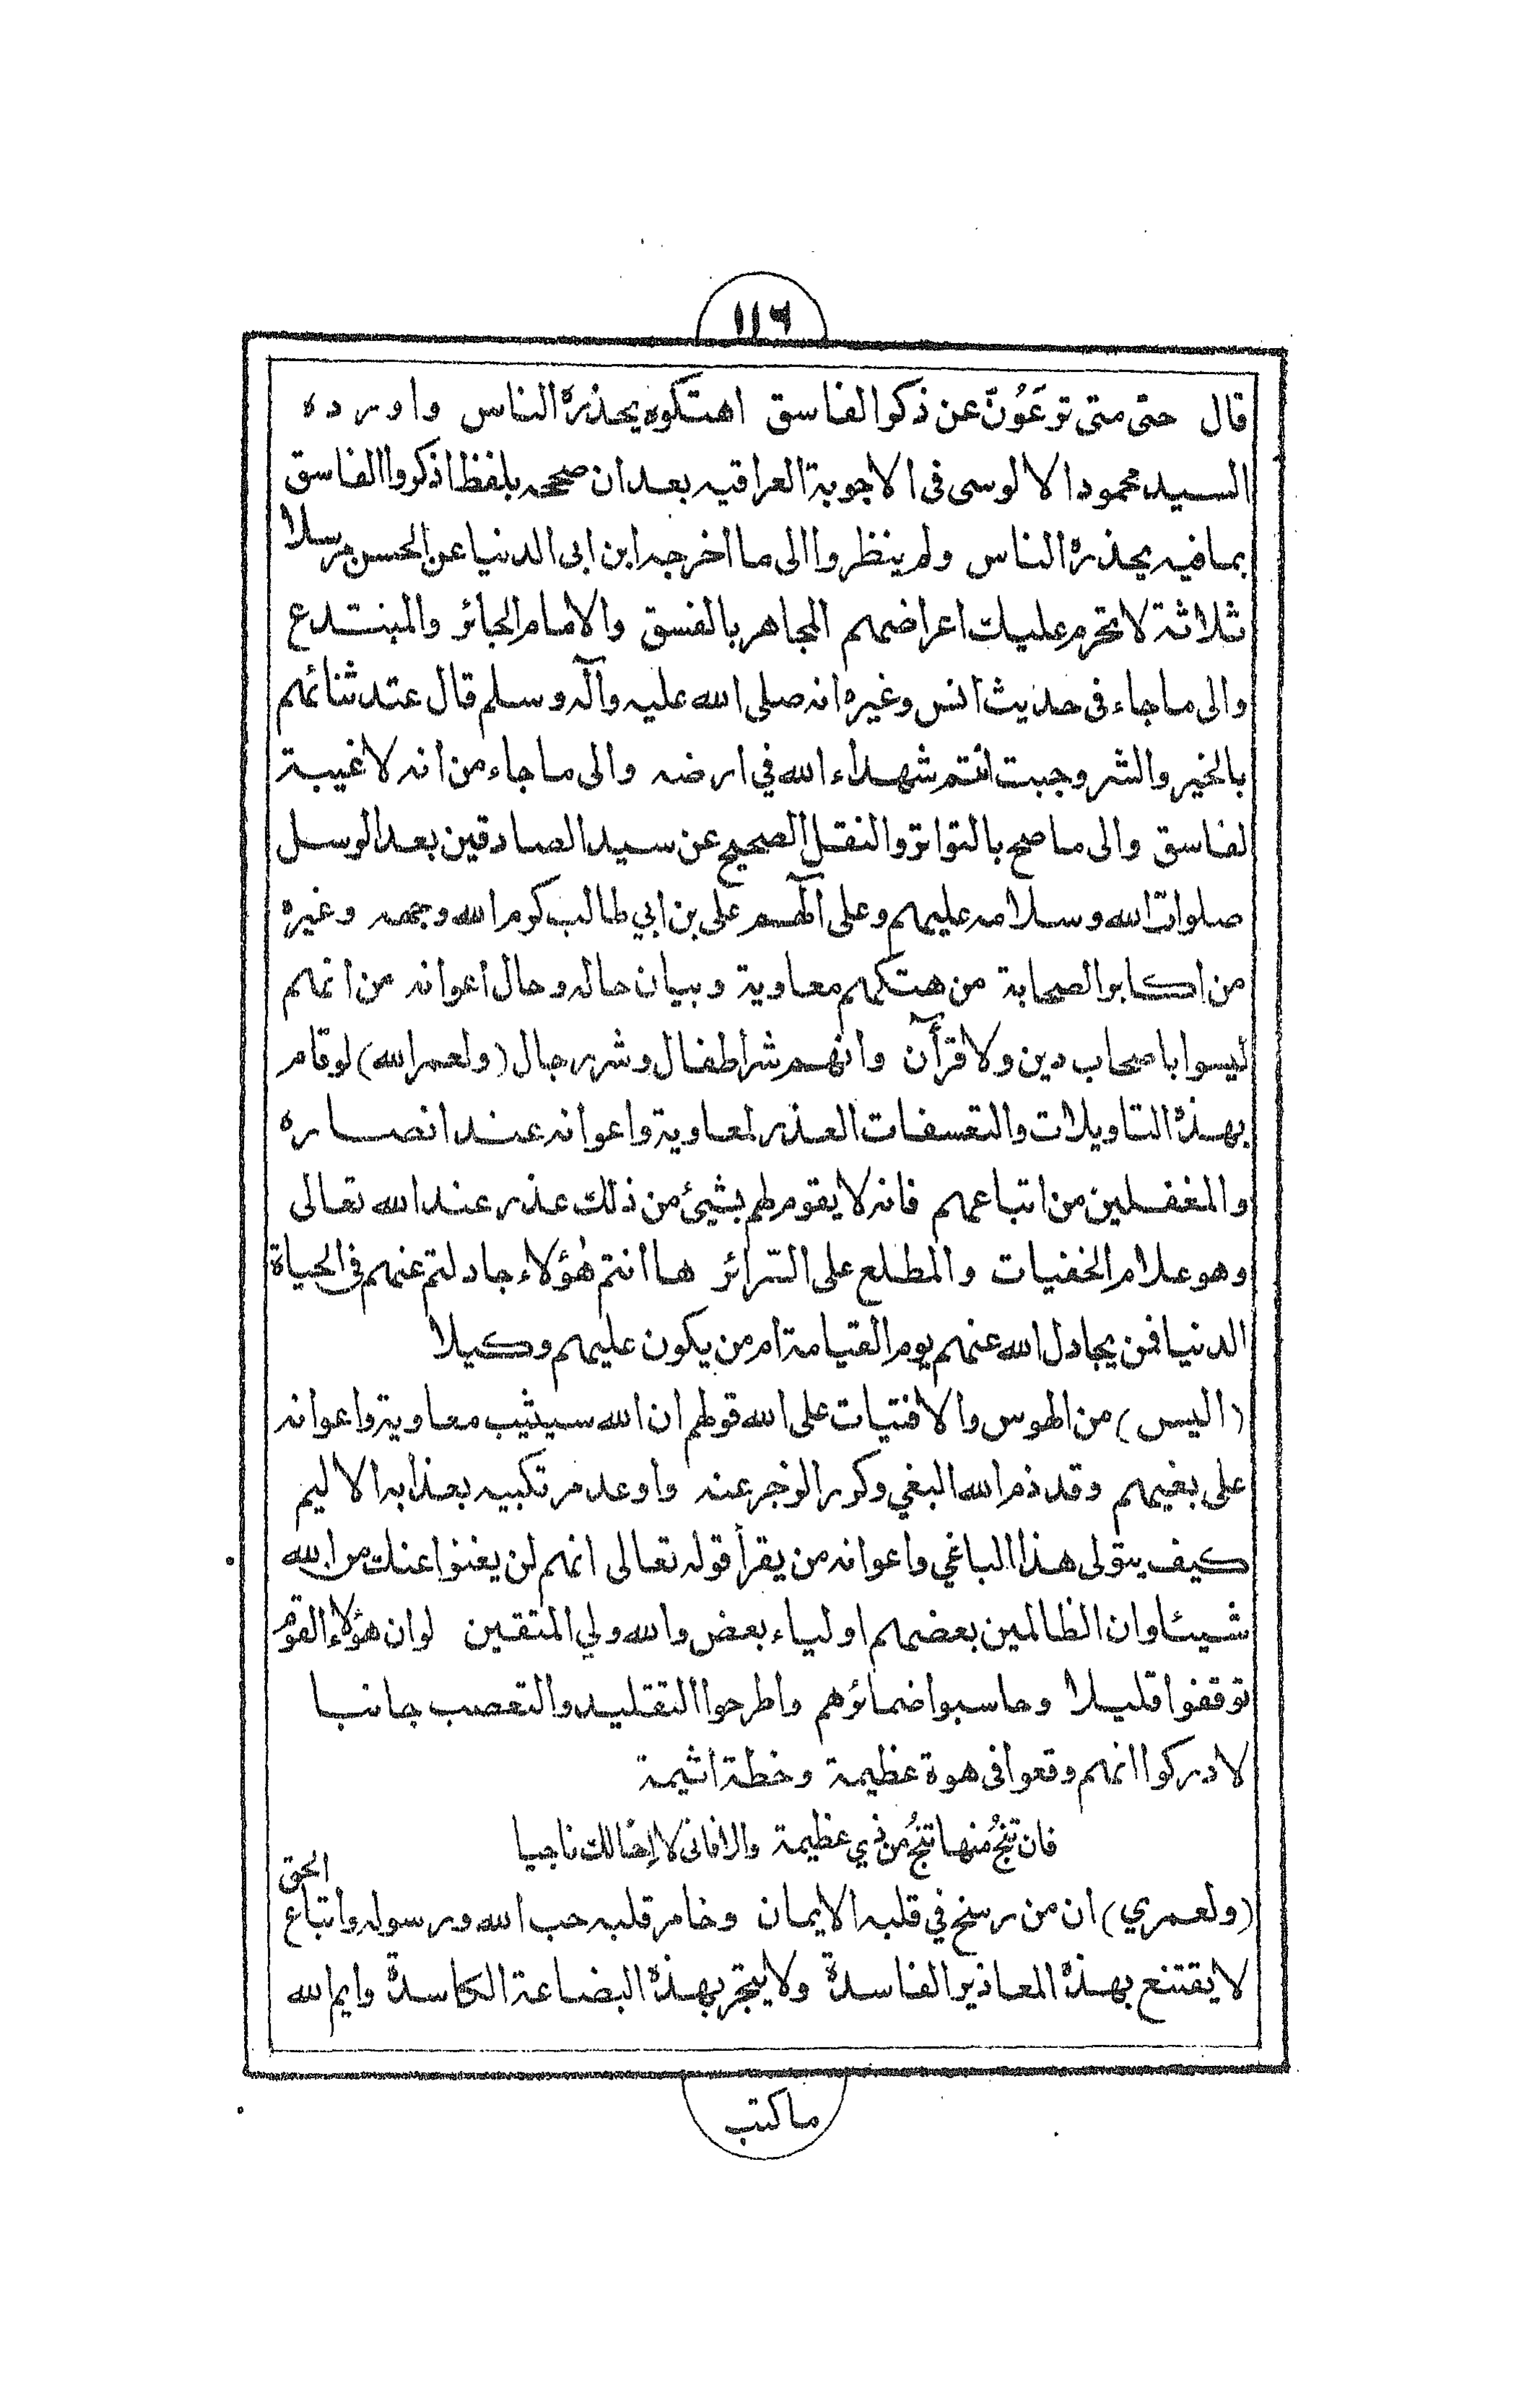 ١١٦
قال حتى متى ترعَوُنّ عن ذكر الفاسق اهتكوه يحذره الناس واورده
السيد محمود الالوسى فى الاجوبة العراقيه بعد ان صححه بلفظ اذكروا الفاسق
بما فيه يحذره الناس ولم ينظروا الى ما اخرجه ابن ابى الدنيا عن الحسن مرسلا
ثلاثة لا تحرم عليك اعراضهم المجاهر بالفسق والامام الجائر والمبتدع
والى ما جاء فى حديث انس وغيره انه صلى الله عليه وآله وسلم قال عند ثنائهم
بالخير والشر وجبت انتم شهداء الله في ارضه والى ما جاء من انه لا غيبة
لفاسق والى ما صح بالتواتر والنقل الصحيح عن سيد الصادقين بعد الرسل
صلوات الله وسلامه عليهم وعلى آلهم على بن ابي طالب كرم الله وجهه وغيره
من اكابر الصحابة من هتكهم معاوية وبيان حاله وحال اعوانه من انهم
ليسوا باصحاب دين ولا قرآن وانهم شر اطفال وشر رجال (ولعمر الله) لو قام
بهذه التاويلات والتعسفات العذر لمعاوية واعوانه عند انصاره
والمغفلين من اتباعهم فانه لا يقوم لهم بشيئ من ذلك عذر عند الله تعالى
وهو علام الخفيات والمطلع على السرائر ها انتم هؤلاء جادلتم عنهم فى الحياة
الدنيا فمن يجادل الله عنهم يوم القيامة ام من يكون عليهم وكيلا
(اليس) من الهوس والافتيات على الله قولهم ان الله سيثيب معاوية واعوانه
على بغيهم وقد ذم الله البغي وكرر الزجر عنه واوعد مرتكبيه بعذابه الاليم
كيف يتولى هذا الباغي واعوانه من يقرأ قوله تعالى انهم لن يغنوا عنك من الله
شيئا وان الظالمين بعضهم اولياء بعض والله ولي المتقين لو ان هؤلاء القوم
توقفوا قليلا وحاسبوا ضمائرهم واطرحوا التقليد والتعصب جانبا
لادركوا انهم وقعوا فى هوة عظيمة وخطة اثيمة
فان تنجُ منها تنجُ من ذي عظيمة والا فانى لا إخالك ناجيا
(ولعمري) ان من رسخ في قلبه الايمان وخامر قلبه حب الله ورسوله واتباع الحق
لا يقتنع بهذه المعاذير الفاسدة ولا يتجر بهذه البضاعة الكاسدة وايم الله
ما كتب